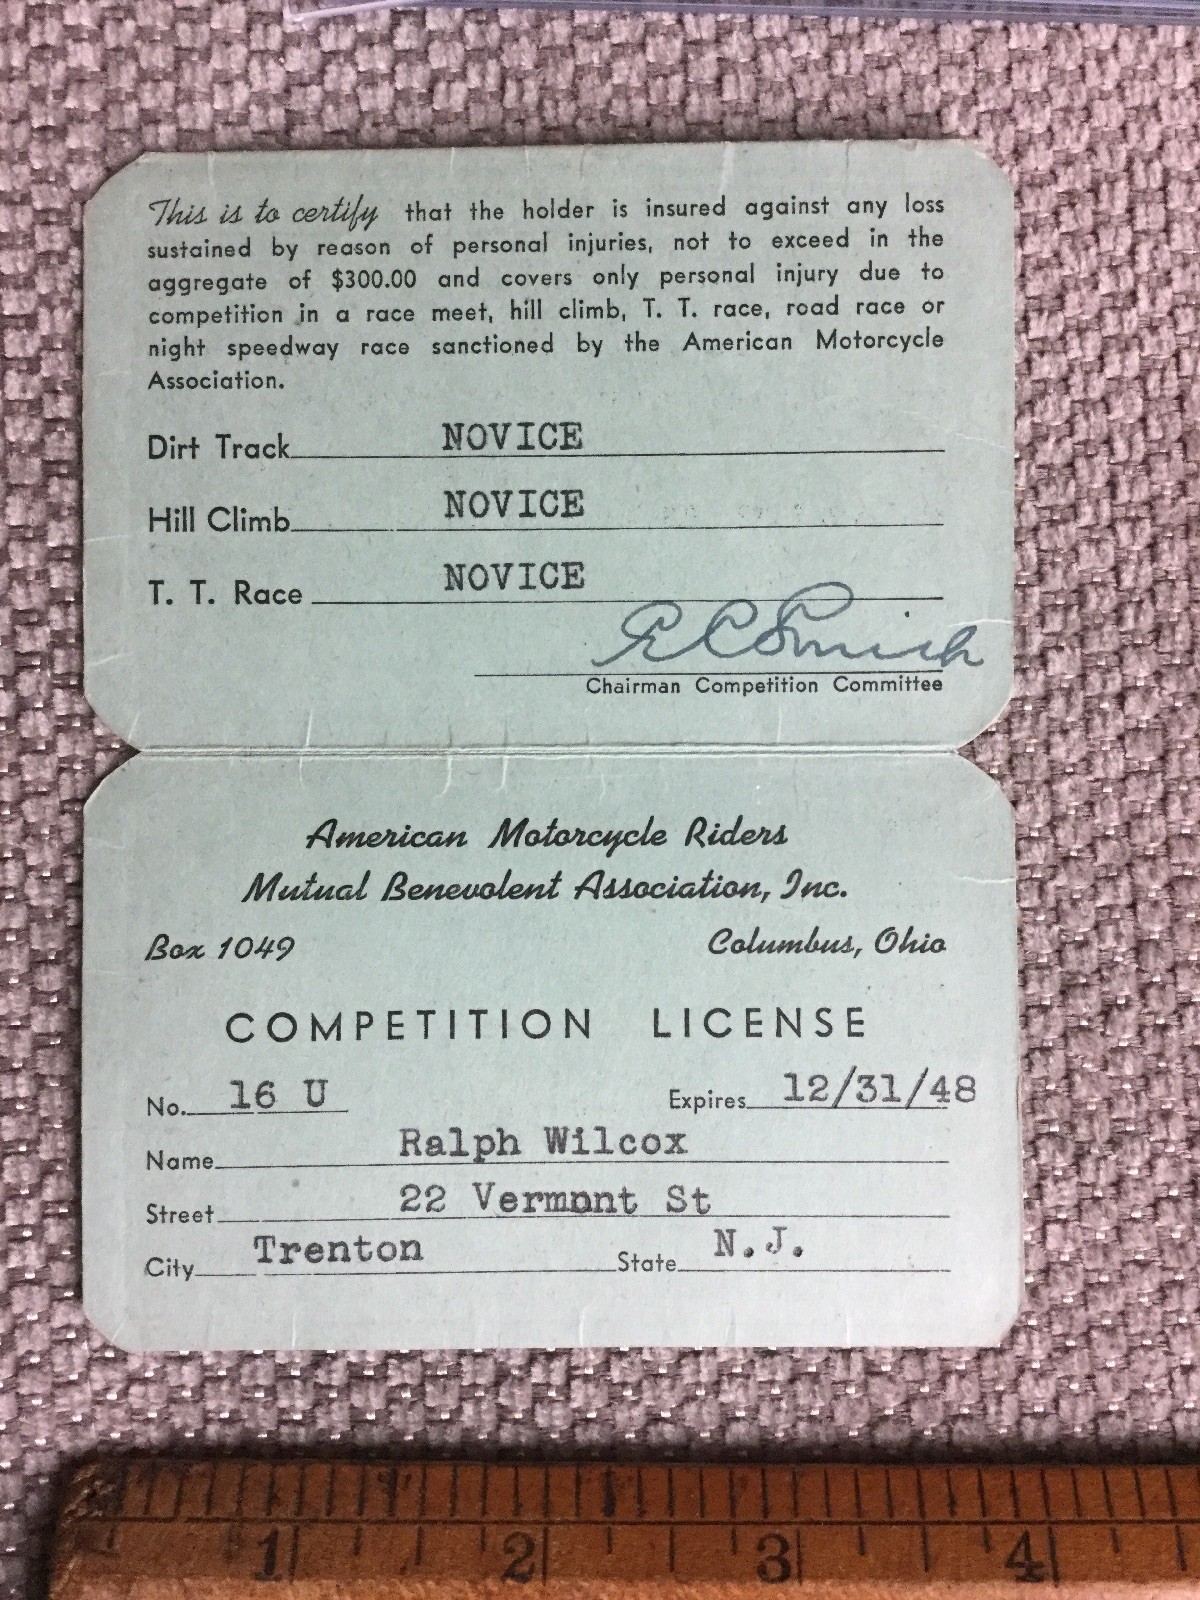 This is to certify that the holder is insured against any loss
sustained by reason of personal injuries, not to exceed in the
aggregate of $300.00 and covers only personal injury due to
competition in a race meet, hill climb, T. T. race, road race or
night speedway race sanctioned by the American Motorcycle
Association.
Dirt Track NOVICE
Hill Climb NOVICE
T. T. Race NOVICE
E C Smith
Chairman Competition Committee
American Motorcycle Riders
Mutual Benevolent Association, Inc.
Box 1049 Columbus, Ohio
COMPETITION LICENSE
No. 16 U Expires 12/31/48
Name Ralph Wilcox
Street 22 Vermont St
City Trenton State N.J.
1 2 3 4